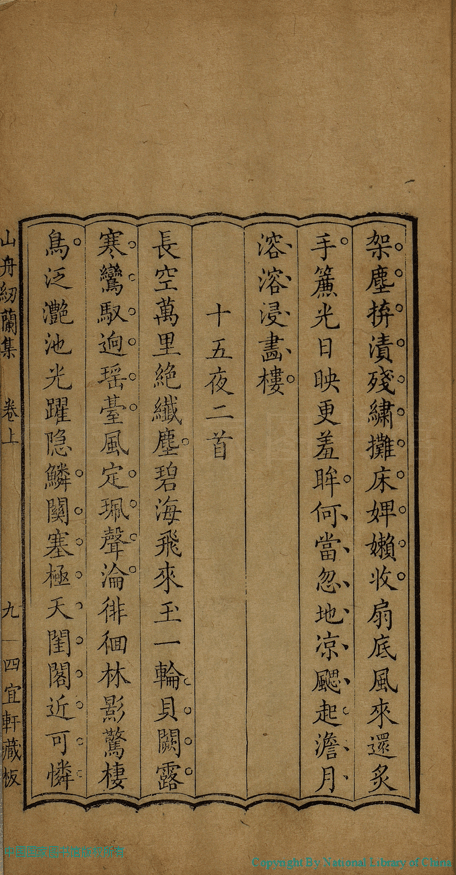 架塵拚漬殘繡攤床婢嬾收扇底風來還炙
手簾光日映更羞眸何當忽地凉颸起澹月
溶溶浸畵樓
十五夜二首
長空萬里絶纖塵碧海飛來玉一輪貝闕露
寒鸞馭逈瑶臺風定珮聲淪徘徊林影驚棲
鳥泛灔池光躍隐鱗關塞極天閨閣近可憐
山舟紉蘭集 卷上 九 四宜軒藏板
Copyright By National Library of China